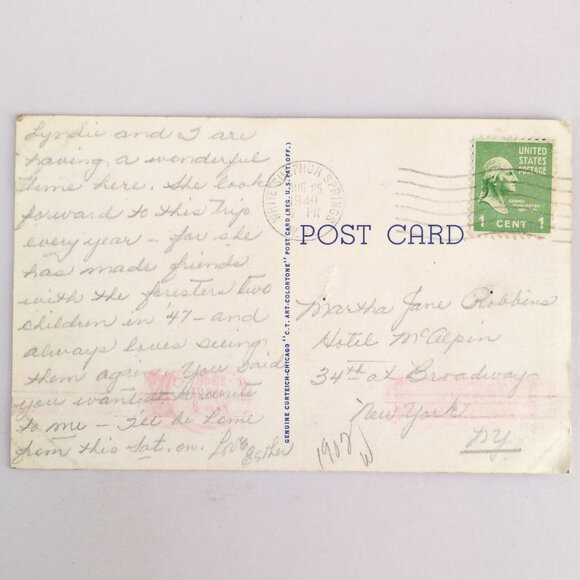 Lyndie and I are
having a wonderful
time here. She look
forward to this Trip
every year - for she
has made friends
with the foresters two
children in 47 - and
always loves seeing
them again. You said
you wanted to write
to me - I'll be home
from this Sat. on. Love
Esther
GENUINE CURTEICH-CHICAGO "C.T. ART-COLORTONE" POST CARD (REG. U.S. PAT. OFF.)
WHITE SULPHUR SPRINGS
AUG 25
1949
PM
UNITED
STATES
POSTAGE
GEORGE
WASHINGTON
1 CENT 1
POST CARD
Martha Jane Robbins
Hotel McAlpin
34th at Broadway
New York
NY
1902
W